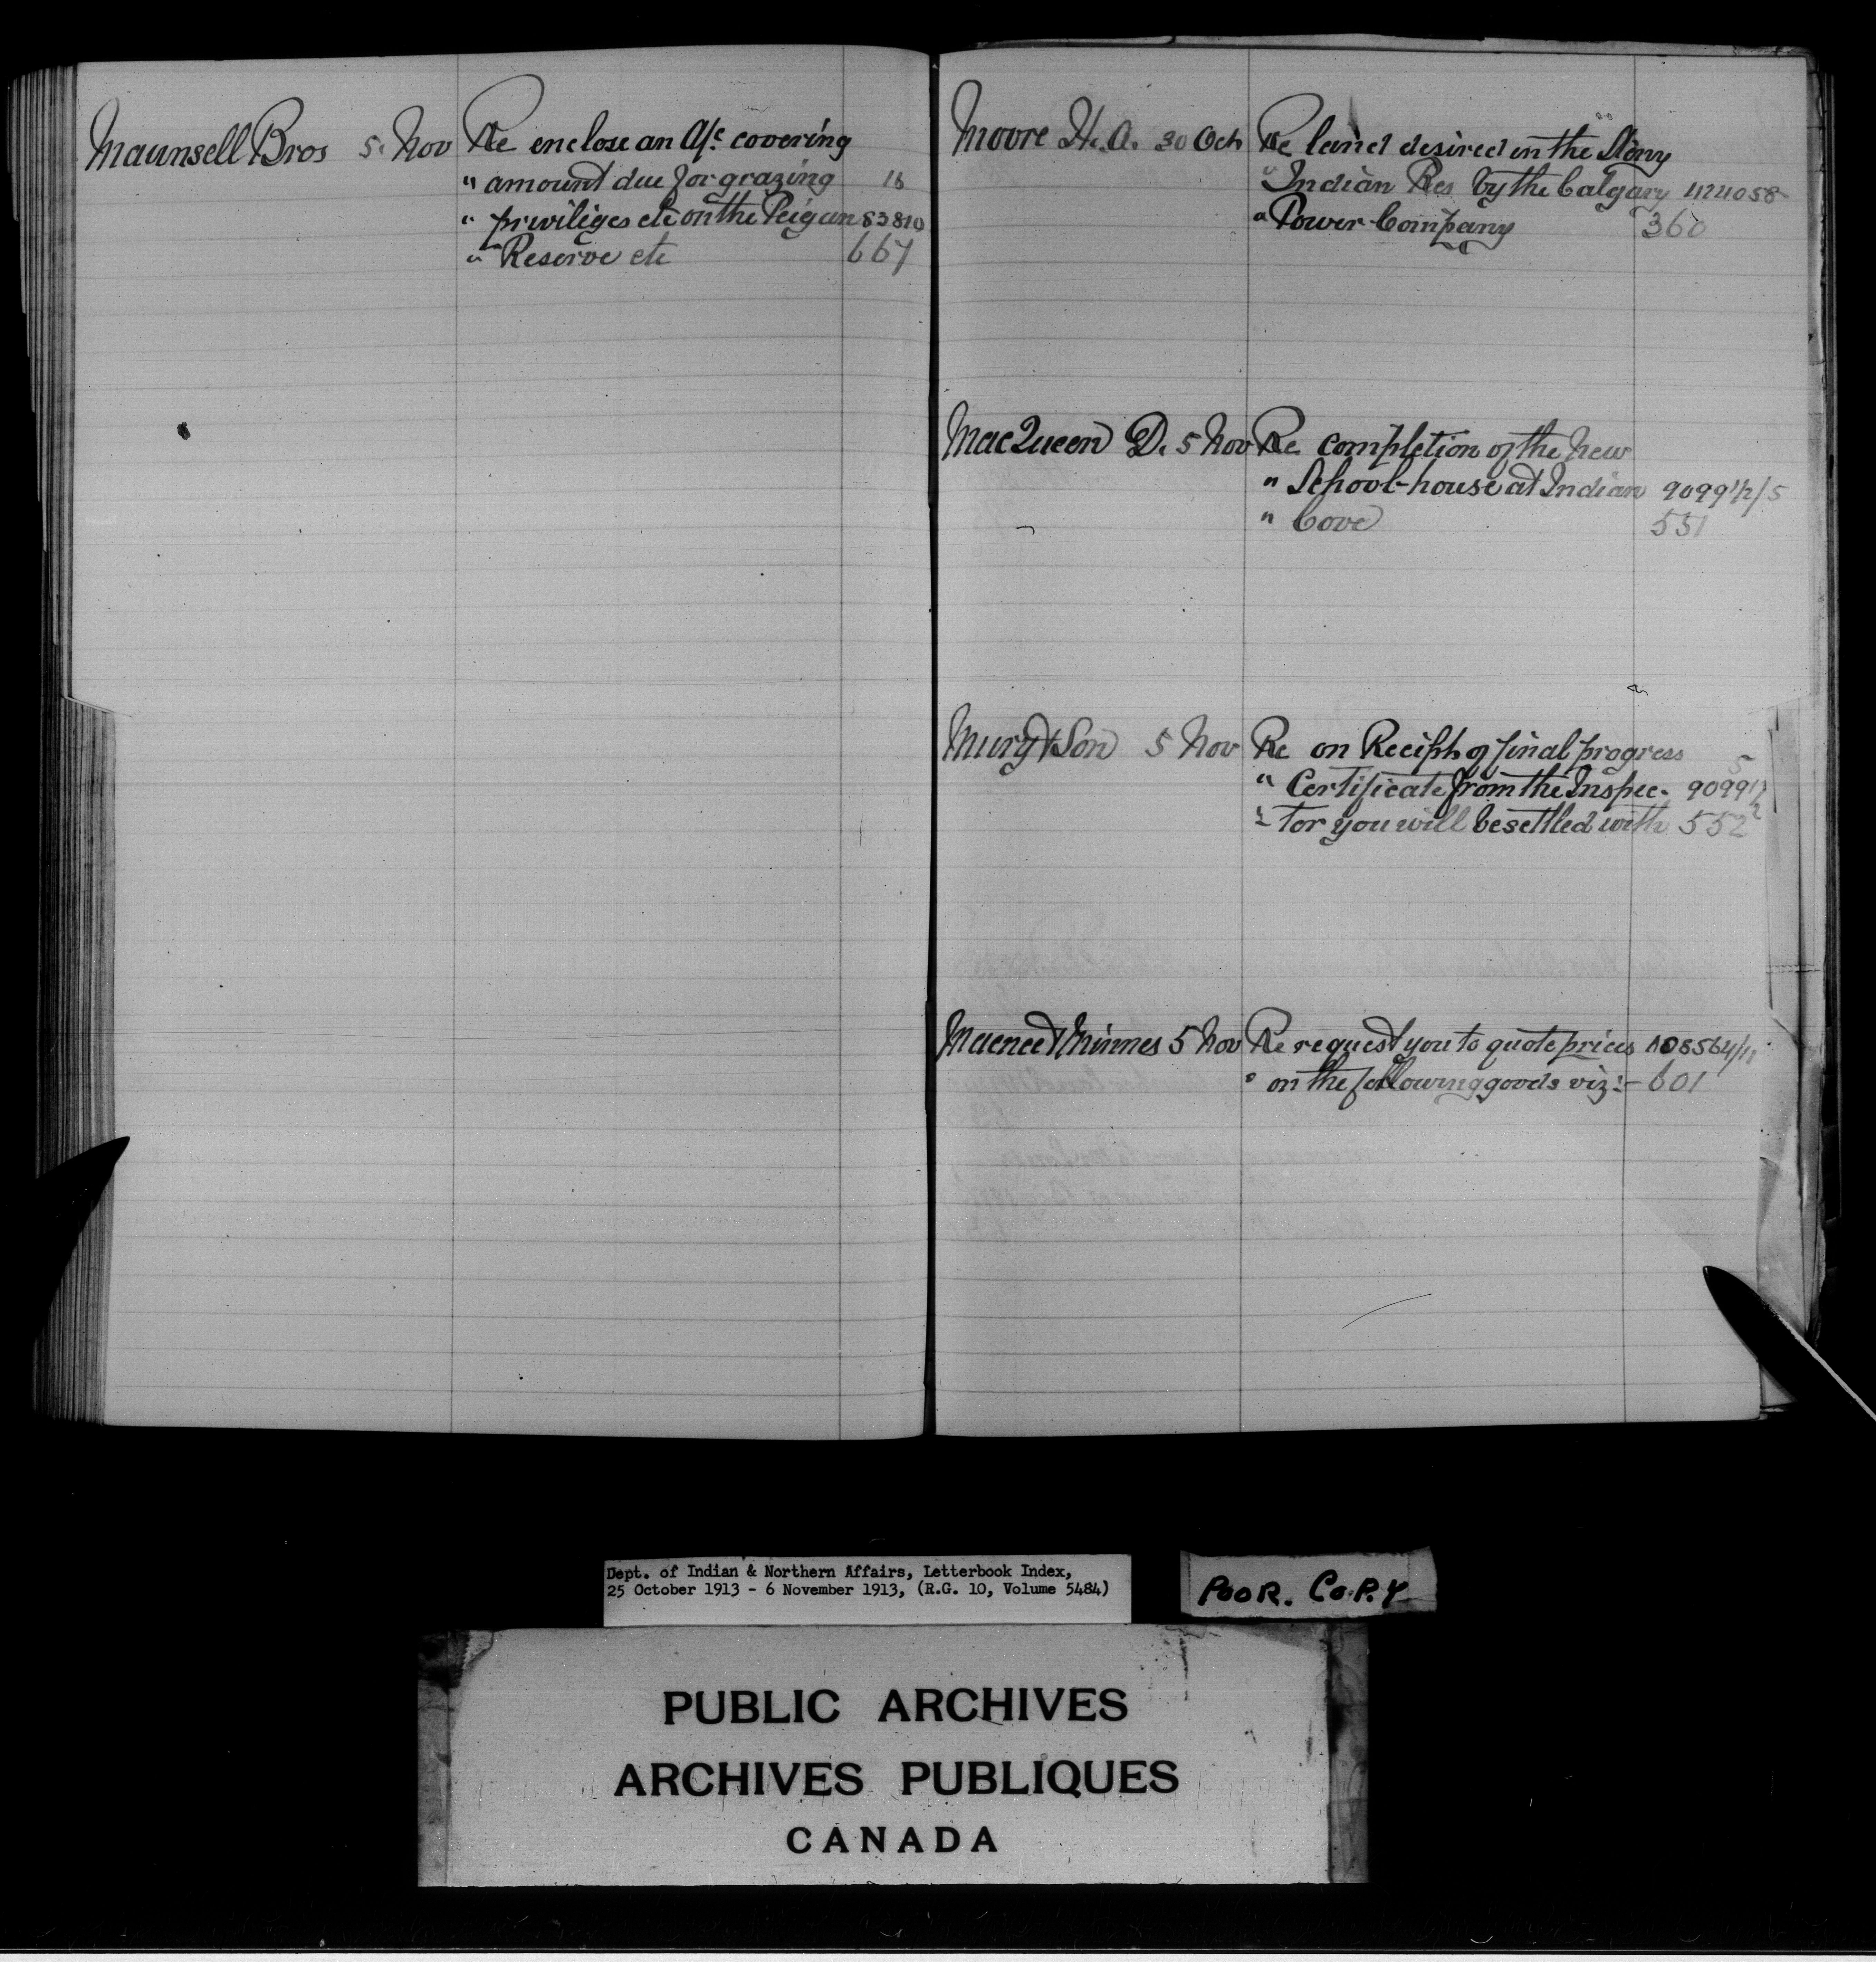 Maunsell Bros 5. Nov Re enclose an A/c covering
" amount due for grazing 16
" priviliges etc on the Peigan 83810
" Reserve etc 667
Moore H. A. 30 Oct Re land desired in the Stony
" Indian Res by the Calgary 424058
" Power Company 360
MacQueen D. 5 Nov Re completion of the New
" School-house at Indian 9099 1/2/5
" Cove 551
& Son 5 Nov Re on Recipt of final progress 5
" Certificate from the Inspec- 9099 1/2
" tor you will be settled with 552
5 Nov Re request you to quote prices 108564/11
" on the following goods viz:- 601
Dept. of Indian & Northern Affairs, Letterbook Index,
25 October 1913 - 6 November 1913, (R.G. 10, Volume 5484)
POOR. COPY
PUBLIC ARCHIVES
ARCHIVES PUBLIQUES
CANADA